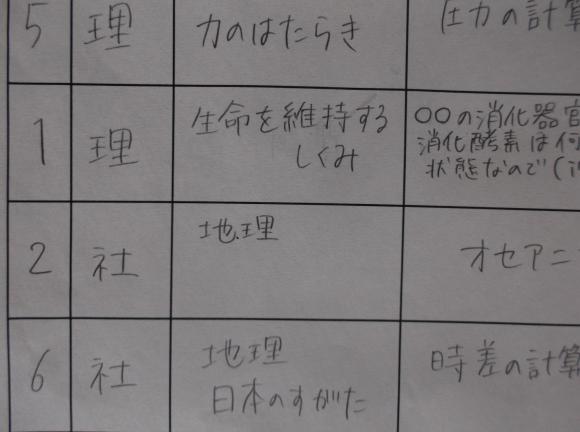 5 理 力のはたらき 圧力の計算
1 理 生命を維持する 〇〇の消化器官
しくみ 消化酵素は何
状態なので(
2 社 地理 オセアニ
6 社 地理 時差の計算
日本のすがた